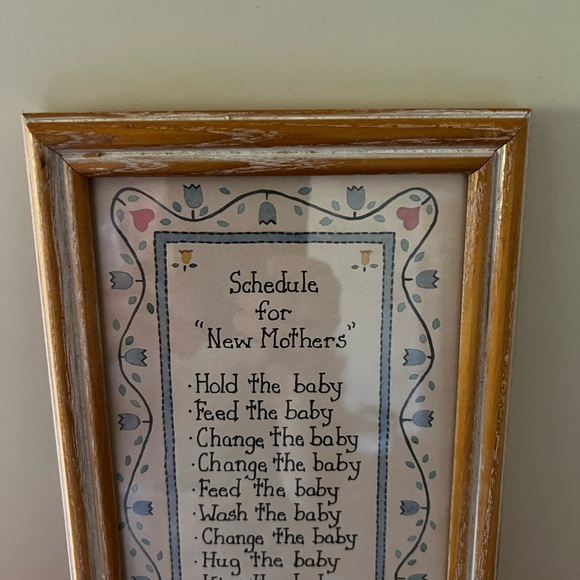 Schedule
for
"New Mothers"
·Hold the baby
·Feed the baby
·Change the baby
·Change the baby
·Feed the baby
·Wash the baby
·Change the baby
·Hug the baby